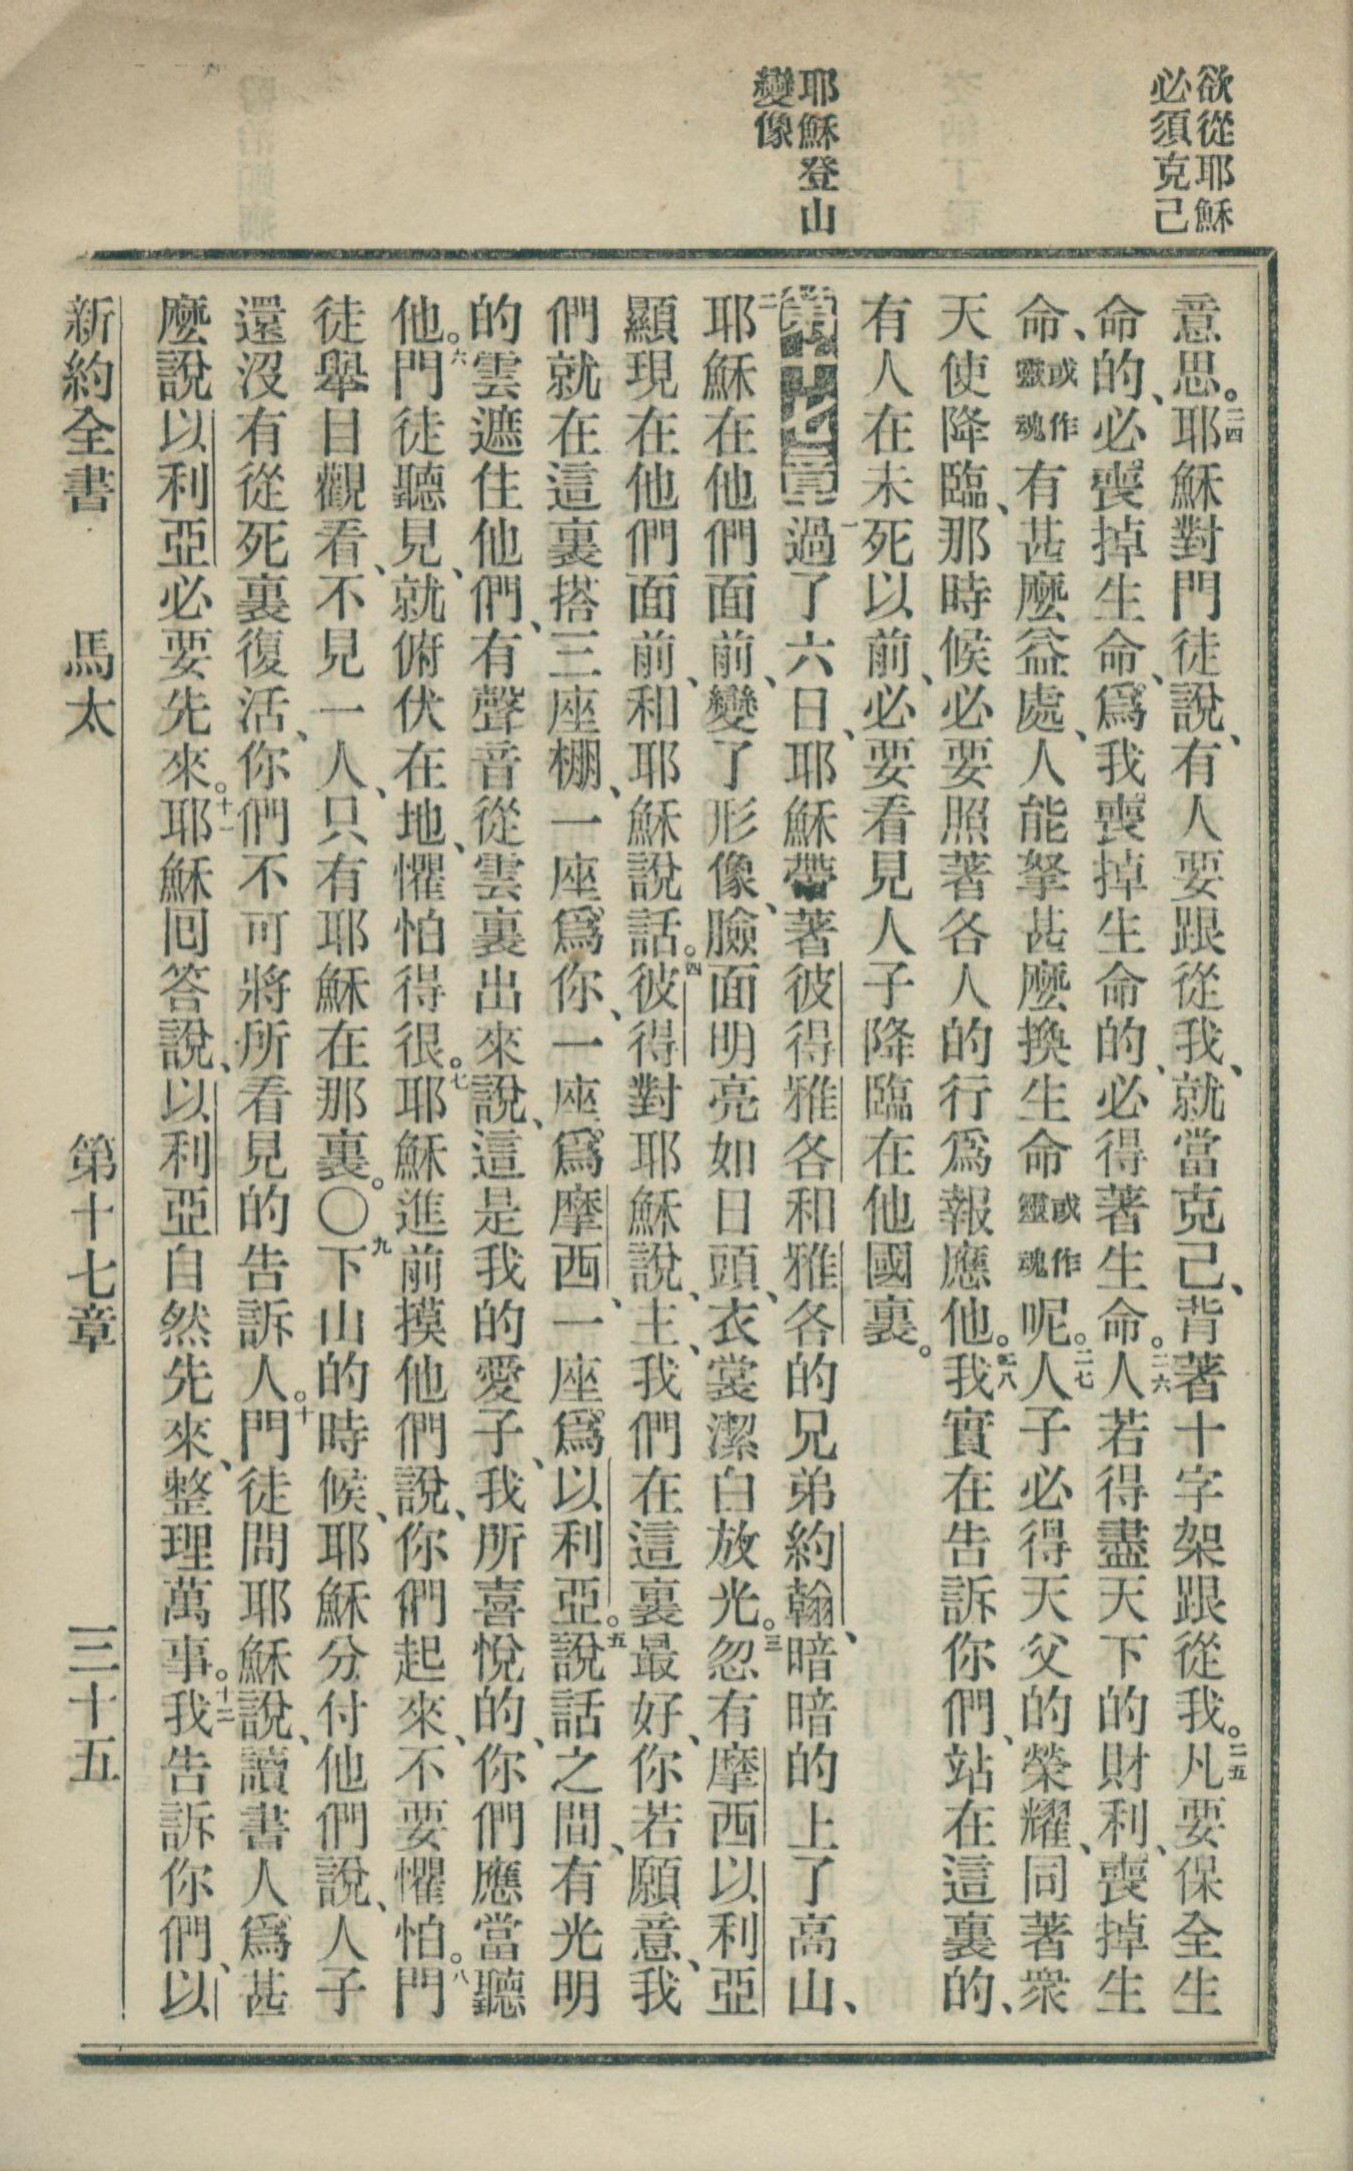 欲從耶穌
必須克己
耶穌登山
變像
意思。二四耶穌對門徒說、有人要跟從我、就當克己、背著十字架跟從我。二五凡要保全生
命的、必喪掉生命、爲我喪掉生命的、必得著生命。二六人若得盡天下的財利、喪掉生
命、或作靈魂有甚麼益處、人能拏甚麼換生命或作靈魂呢。二七人子必得天父的榮耀、同著衆
天使降臨、那時候必要照著各人的行爲報應他。二八我實在告訴你們、站在這裏的、
有人在未死以前、必要看見人子降臨在他國裏。
第十七章一過了六日、耶穌帶著彼得雅各和雅各的兄弟約翰、暗暗的上了高山、
二耶穌在他們面前、變了形像、臉面明亮如日頭、衣裳潔白放光。三忽有摩西以利亞
顯現在他們面前、和耶穌說話。四彼得對耶穌說、主、我們在這裏最好、你若願意、我
們就在這裏搭三座棚、一座爲你、一座爲摩西、一座爲以利亞。五說話之間、有光明
的雲遮住他們、有聲音從雲裏出來說、這是我的愛子、我所喜悅的、你們應當聽
他。六門徒聽見、就俯伏在地、懼怕得很。七耶穌進前摸他們說、你們起來、不要懼怕。八門
徒舉目觀看、不見一人、只有耶穌在那裏。〇九下山的時候、耶穌分付他們說、人子
還沒有從死裏復活、你們不可將所看見的告訴人。十門徒問耶穌說、讀書人爲甚
麼說以利亞必要先來。十一耶穌回答說、以利亞自然先來、整理萬事。十二我告訴你們、以
新約全書　馬太　第十七章　三十五